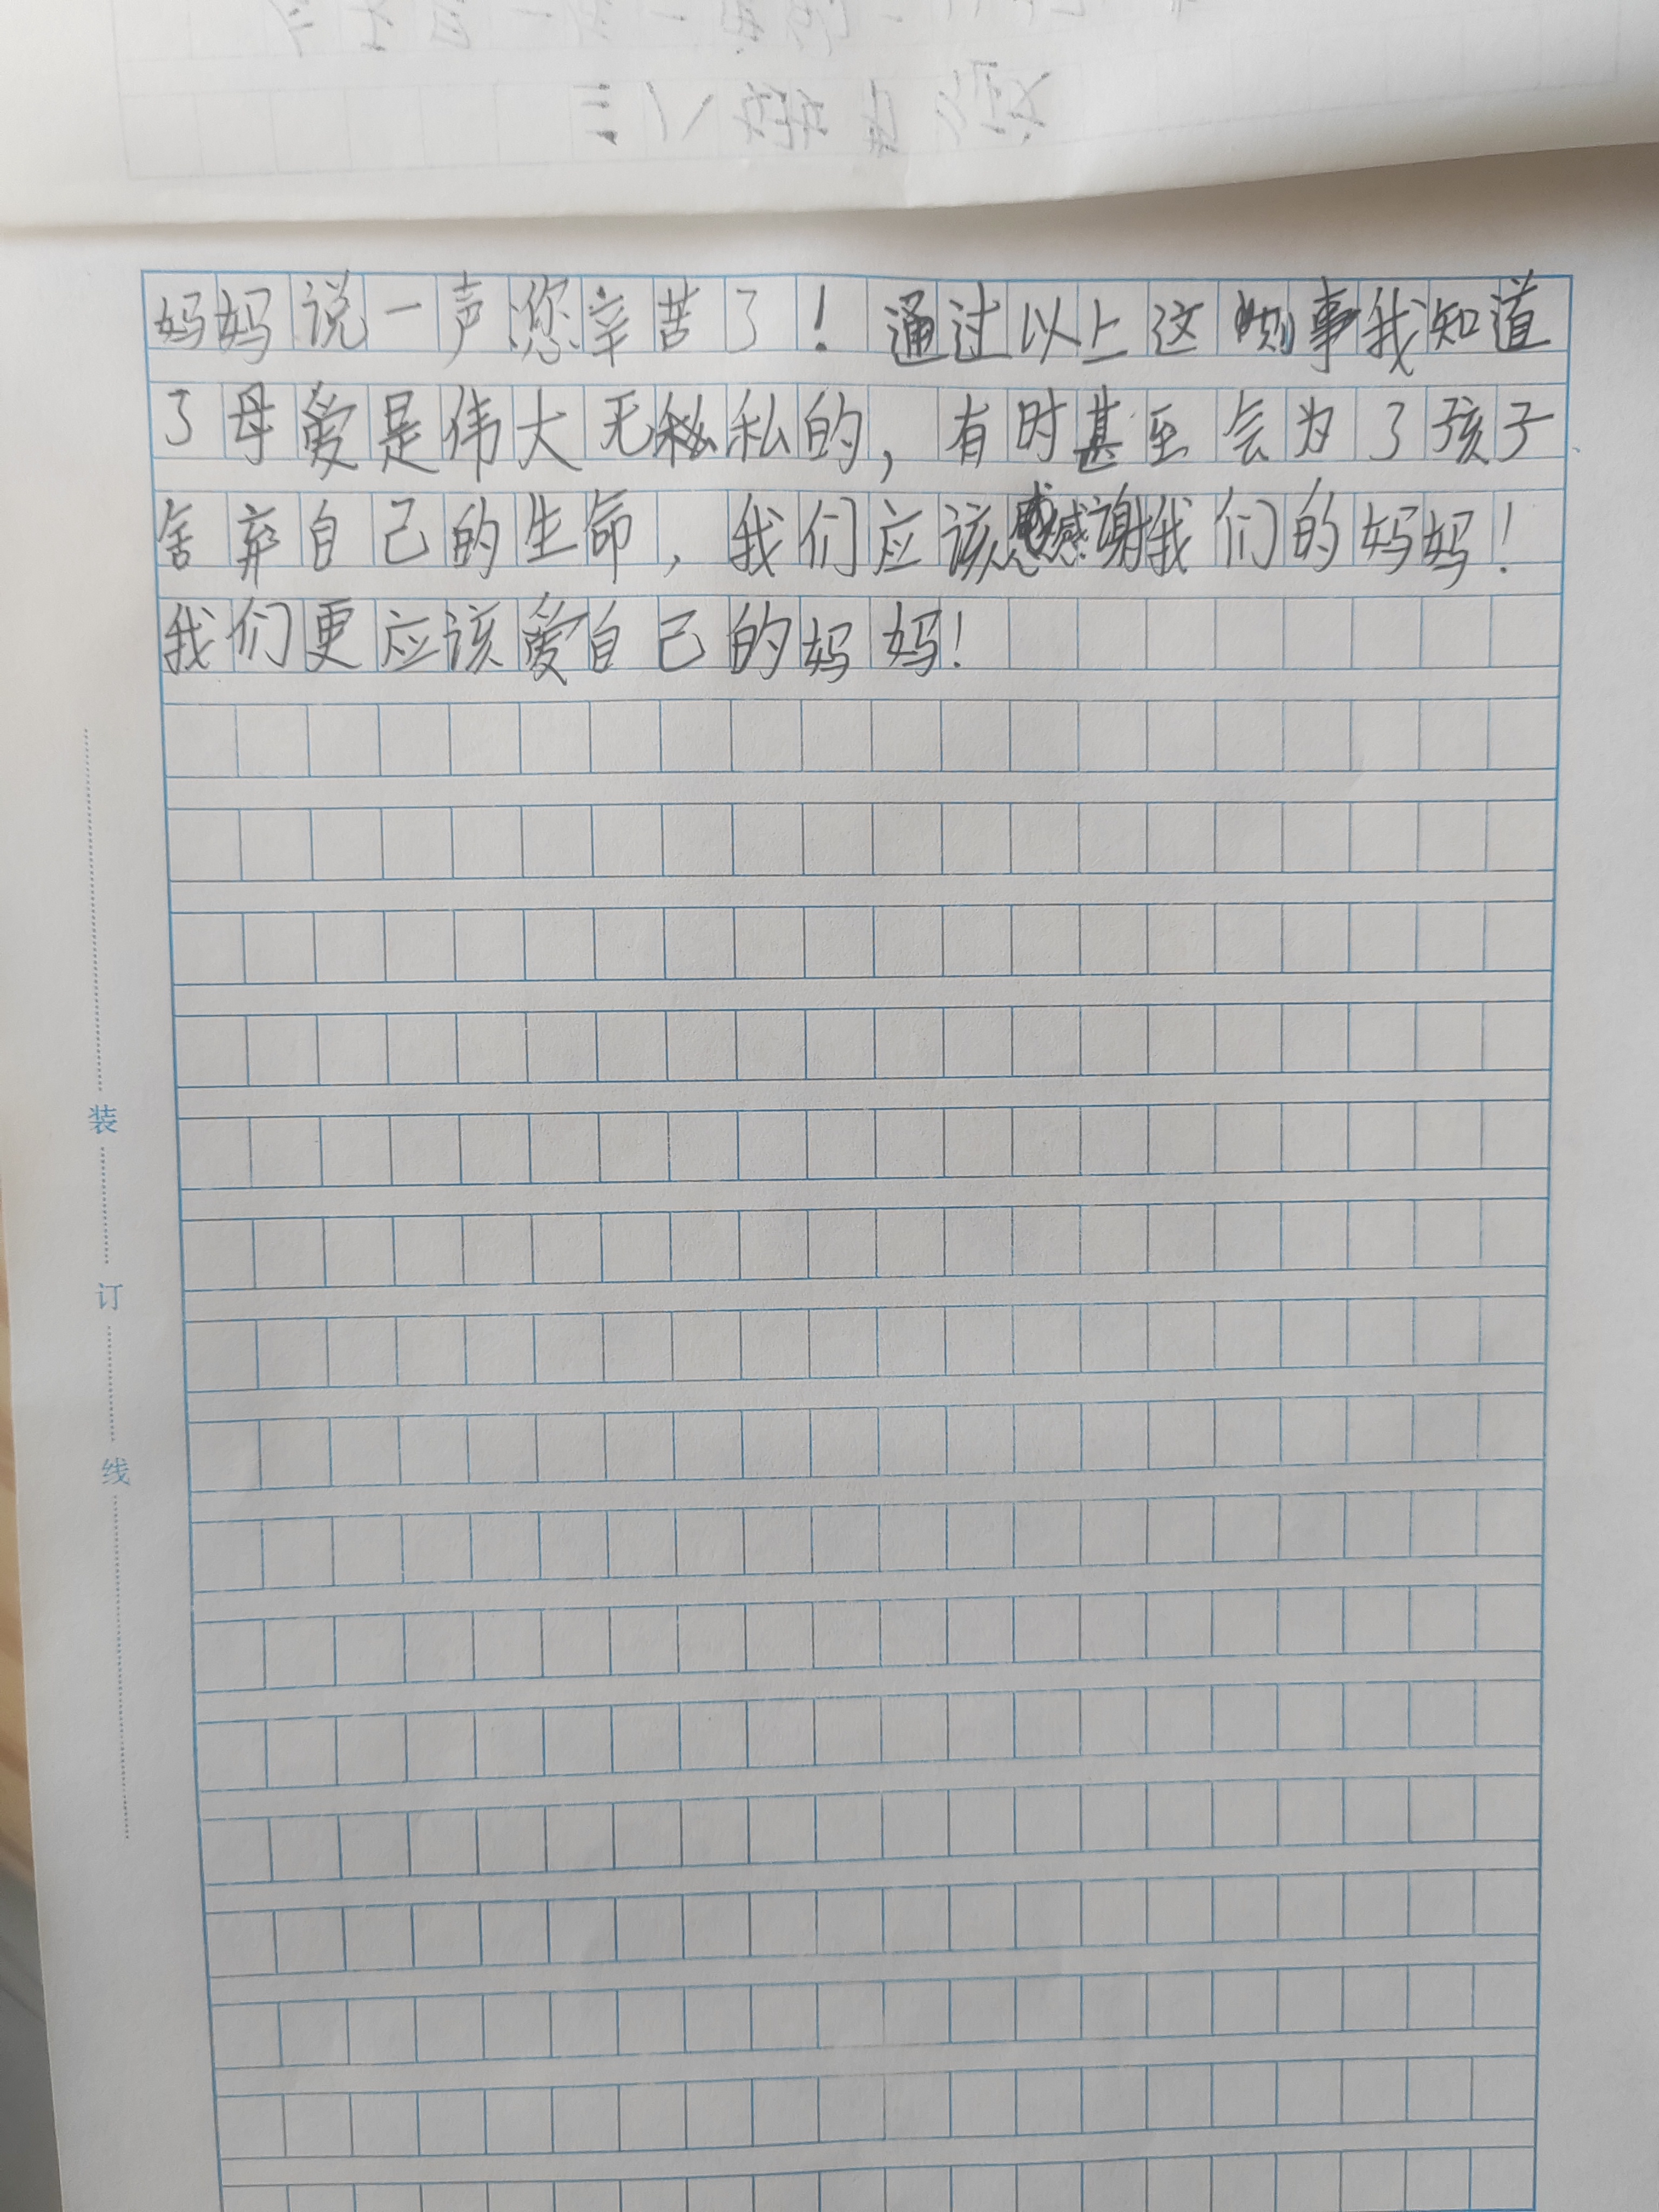 三八妇女节
妈妈说一声您辛苦了！通过以上这则事我知道
了母爱是伟大无私的，有时甚至会为了孩子
舍弃自己的生命，我们应该感谢我们的妈妈！
我们更应该爱自己的妈妈！
装
订
线